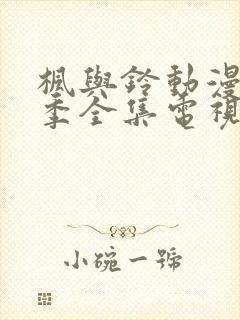 楓與鈴動漫
季全集電視
小碗一號